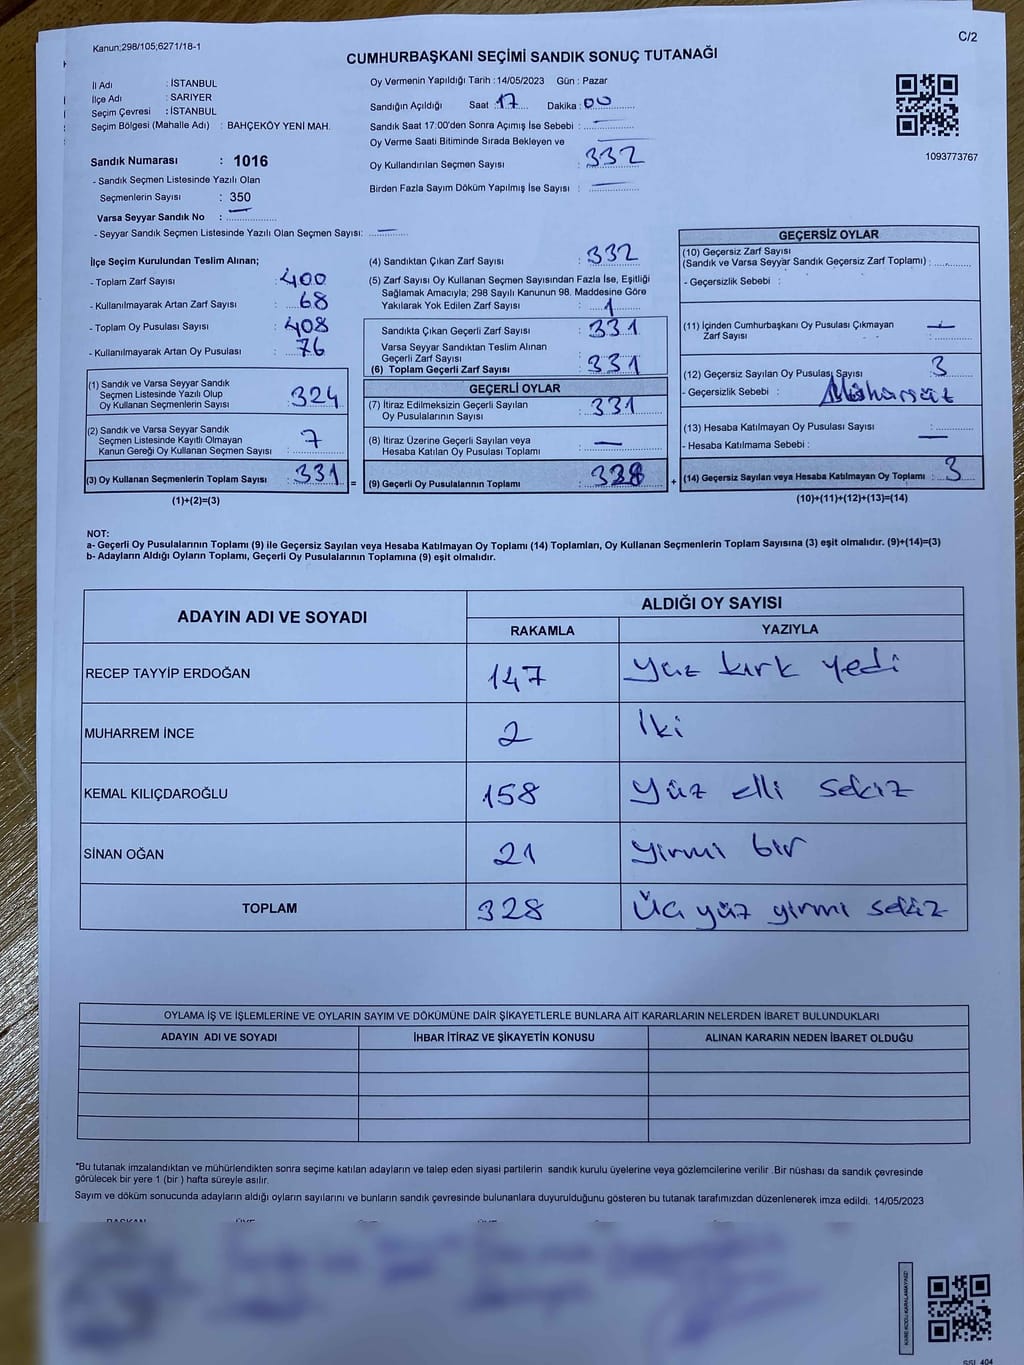 Kanun;298/105;6271/18-1
C/2
CUMHURBAŞKANI SEÇİMİ SANDIK SONUÇ TUTANAĞI
İl Adı : İSTANBUL
İlçe Adı : SARIYER
Seçim Çevresi : İSTANBUL
Seçim Bölgesi (Mahalle Adı) : BAHÇEKÖY YENİ MAH.
Sandık Numarası : 1016
- Sandık Seçmen Listesinde Yazılı Olan
Seçmenlerin Sayısı : 350
Varsa Seyyar Sandık No : —
- Seyyar Sandık Seçmen Listesinde Yazılı Olan Seçmen Sayısı: —
Oy Vermenin Yapıldığı Tarih : 14/05/2023 Gün : Pazar
Sandığın Açıldığı Saat : 17 Dakika : 00
Sandık Saat 17:00'den Sonra Açımış İse Sebebi : —
Oy Verme Saati Bitiminde Sırada Bekleyen ve
Oy Kullandırılan Seçmen Sayısı : 332
Birden Fazla Sayım Döküm Yapılmış İse Sayısı : —
1093773767
İlçe Seçim Kurulundan Teslim Alınan;
- Toplam Zarf Sayısı : 400
- Kullanılmayarak Artan Zarf Sayısı : 68
- Toplam Oy Pusulası Sayısı : 408
- Kullanılmayarak Artan Oy Pusulası : 76
(1) Sandık ve Varsa Seyyar Sandık
Seçmen Listesinde Yazılı Olup
Oy Kullanan Seçmenlerin Sayısı : 324
(2) Sandık ve Varsa Seyyar Sandık
Seçmen Listesinde Kayıtlı Olmayan
Kanun Gereği Oy Kullanan Seçmen Sayısı : 7
(3) Oy Kullanan Seçmenlerin Toplam Sayısı : 331
(1)+(2)=(3)
=
(4) Sandıktan Çıkan Zarf Sayısı : 332
(5) Zarf Sayısı Oy Kullanan Seçmen Sayısından Fazla İse, Eşitliği
Sağlamak Amacıyla; 298 Sayılı Kanunun 98. Maddesine Göre
Yakılarak Yok Edilen Zarf Sayısı : 1
Sandıkta Çıkan Geçerli Zarf Sayısı : 331
Varsa Seyyar Sandıktan Teslim Alınan
Geçerli Zarf Sayısı
(6) Toplam Geçerli Zarf Sayısı : 331
GEÇERLİ OYLAR
(7) İtiraz Edilmeksizin Geçerli Sayılan
Oy Pusulalarının Sayısı : 331
(8) İtiraz Üzerine Geçerli Sayılan veya
Hesaba Katılan Oy Pusulası Toplamı : —
(9) Geçerli Oy Pusulalarının Toplamı : 328
+
GEÇERSİZ OYLAR
(10) Geçersiz Zarf Sayısı
(Sandık ve Varsa Seyyar Sandık Geçersiz Zarf Toplamı) :
- Geçersizlik Sebebi :
(11) İçinden Cumhurbaşkanı Oy Pusulası Çıkmayan
Zarf Sayısı : —
(12) Geçersiz Sayılan Oy Pusulası Sayısı : 3
- Geçersizlik Sebebi :
(13) Hesaba Katılmayan Oy Pusulası Sayısı :
- Hesaba Katılmama Sebebi : —
(14) Geçersiz Sayılan veya Hesaba Katılmayan Oy Toplamı : 3
(10)+(11)+(12)+(13)=(14)
NOT:
a- Geçerli Oy Pusulalarının Toplamı (9) ile Geçersiz Sayılan veya Hesaba Katılmayan Oy Toplamı (14) Toplamları, Oy Kullanan Seçmenlerin Toplam Sayısına (3) eşit olmalıdır. (9)+(14)=(3)
b- Adayların Aldığı Oyların Toplamı, Geçerli Oy Pusulalarının Toplamına (9) eşit olmalıdır.
ADAYIN ADI VE SOYADI
ALDIĞI OY SAYISI
RAKAMLA YAZIYLA
RECEP TAYYİP ERDOĞAN 147 yüz kırk yedi
MUHARREM İNCE 2 İki
KEMAL KILIÇDAROĞLU 158 Yüz elli sekiz
SİNAN OĞAN 21 yirmi bir
TOPLAM 328 Üç yüz yirmi sekiz
OYLAMA İŞ VE İŞLEMLERİNE VE OYLARIN SAYIM VE DÖKÜMÜNE DAİR ŞİKAYETLERLE BUNLARA AİT KARARLARIN NELERDEN İBARET BULUNDUKLARI
ADAYIN ADI VE SOYADI İHBAR İTİRAZ VE ŞİKAYETİN KONUSU ALINAN KARARIN NEDEN İBARET OLDUĞU
"Bu tutanak imzalandıktan ve mühürlendikten sonra seçime katılan adayların ve talep eden siyasi partilerin sandık kurulu üyelerine veya gözlemcilerine verilir .Bir nüshası da sandık çevresinde
görülecek bir yere 1 (bir ) hafta süreyle asılır.
Sayım ve döküm sonucunda adayların aldığı oyların sayılarını ve bunların sandık çevresinde bulunanlara duyurulduğunu gösteren bu tutanak tarafımızdan düzenlenerek imza edildi. 14/05/2023